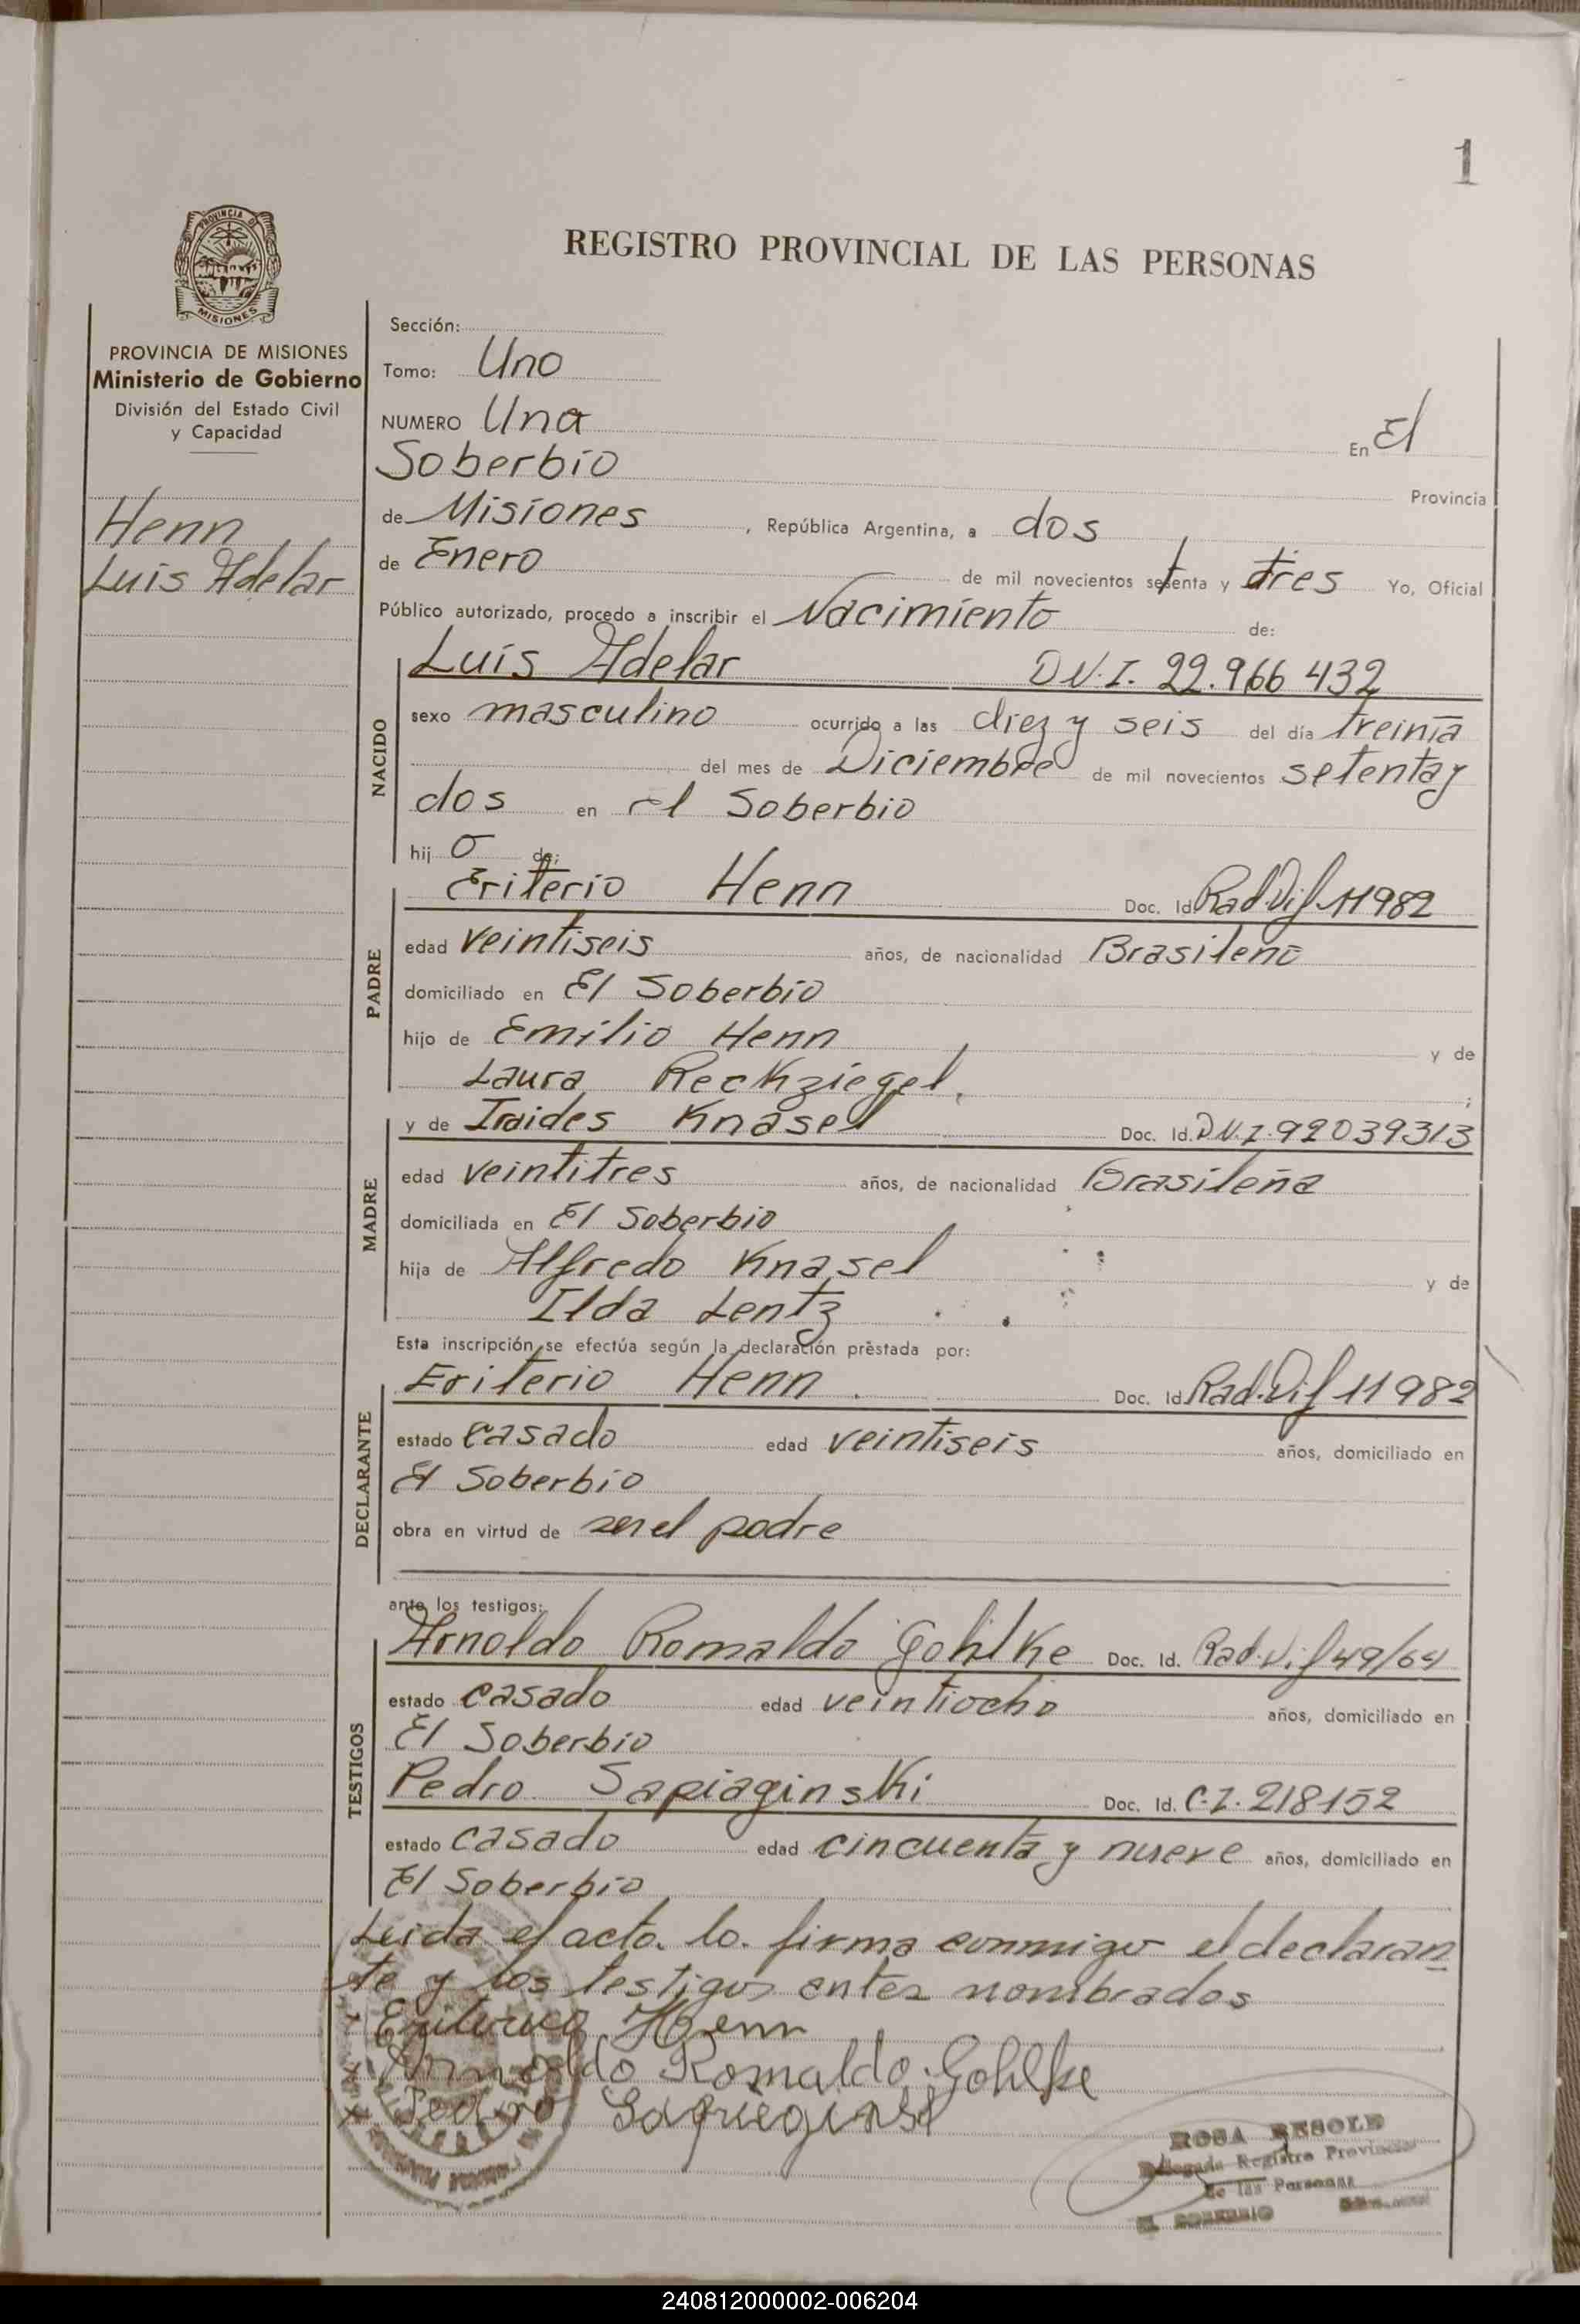 1
PROVINCIA DE
MISIONES
REGISTRO PROVINCIAL DE LAS PERSONAS
PROVINCIA DE MISIONES
Ministerio de Gobierno
División del Estado Civil
y Capacidad
Henn
Luis Adelar
Sección:
Tomo: Uno
NUMERO Una En El
Soberbio Provincia
de Misiones, República Argentina, a dos
de Enero de mil novecientos setenta y tres Yo, Oficial
Público autorizado, procedo a inscribir el Nacimiento de:
NACIDO
Luis Adelar D.N.I. 22.966 432
sexo masculino ocurrido a las diez y seis del día treinta
del mes de Diciembre de mil novecientos setenta y
dos en el Soberbio
hijo de:
PADRE
Eriterio Henn Doc. Id. Rad. Dif. 11982
edad veintiseis años, de nacionalidad Brasileño
domiciliado en El Soberbio
hijo de Emilio Henn y de
Laura Reckziegel, ;
MADRE
y de Iraides Knasel Doc. Id. D.N.I. 92039313
edad veintitres años, de nacionalidad Brasileña
domiciliada en El Soberbio
hija de Alfredo Knasel y de
Ilda Lentz
Esta inscripción se efectúa según la declaración prestada por:
DECLARANTE
Eriterio Henn. Doc. Id. Rad. Dif 11982
estado casado edad veintiseis años, domiciliado en
El Soberbio
obra en virtud de ser el padre
ante los testigos:
TESTIGOS
Arnoldo Romaldo Gohlke Doc. Id. Rad. Dif 49/64
estado casado edad veintiocho años, domiciliado en
El Soberbio
Pedro Sapiaginski Doc. Id. C.I. 218152
estado casado edad cincuenta y nueve años, domiciliado en
El Soberbio
Leida el acta lo firma conmigo el declaran
te y los testigos antes nombrados
Eriterio Henn
Arnoldo Romaldo Gohlke
Pedro
ROSA RESOLE
Delegada Registro Provincial
de las Personas
EL SOBERBIO
240812000002-006204